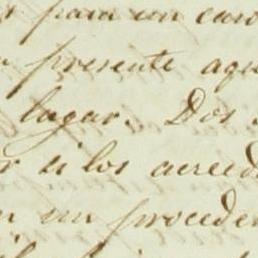 para un caso
presente aqu
lugar. Dos
r si los acreed
un proceder